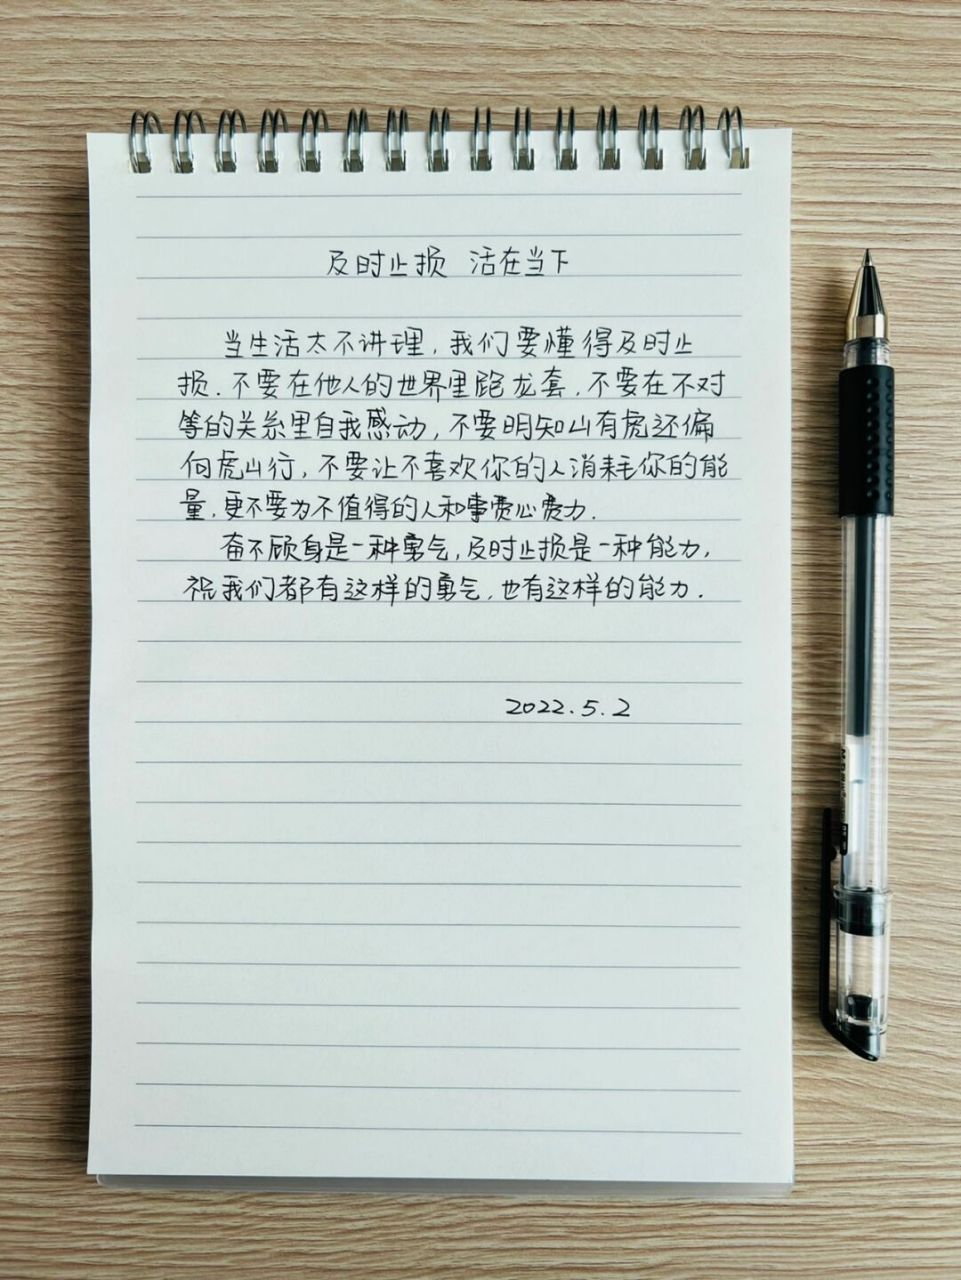 及时止损 活在当下
当生活太不讲理，我们要懂得及时止
损．不要在他人的世界里跑龙套，不要在不对
等的关系里自我感动，不要明知山有虎还偏
向虎山行，不要让不喜欢你的人消耗你的能
量，更不要为不值得的人和事费心费力．
奋不顾身是一种勇气，及时止损是一种能力，
祝我们都有这样的勇气，也有这样的能力．
2022.5.2